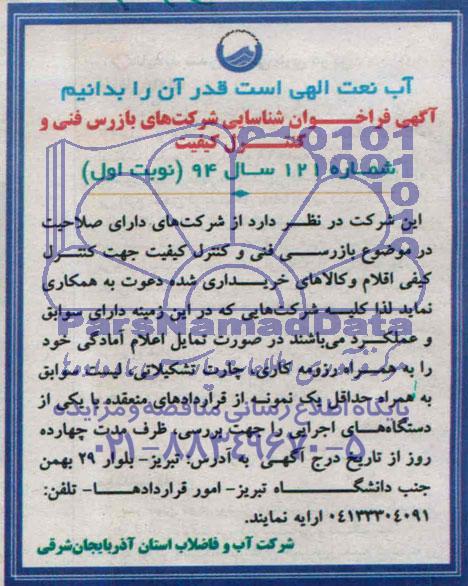 آب نعت الهی است قدر آن را بدانیم
آگهی فراخـــوان شناسایی شرکت‌های بازرس فنی و
کنتـــرل کیفیت
شمـاره ۱۲۱ سـال ۹۴ (نوبت اول)
این شرکت در نظـر دارد از شرکت‌های دارای صلاحیت
در موضوع بازرسـی فنی و کنترل کیفیت جهت کنتـرل
کیفی اقلام وکالاهای خریـداری شده دعوت به همکاری
نماید لذا کلیـه شرکت‌هایی که در این زمینه دارای سوابق
و عملکـرد می‌باشند در صورت تمایل اعلام آمادگی خود
را به همـراه رزومه کاری، چارت تشکیلاتی، لیست سوابق
به همراه حداقل یک نمونـه از قراردادهای منعقده با یکی از
دستگاه‌هـای اجرایی را جهت بررسی، ظرف مدت چهارده
روز از تاریخ درج آگهـی به آدرس: تبریز- بلوار ۲۹ بهمن
جنب دانشگـــاه تبریز- امور قراردادهـا- تلفن:
۰۴۱۳۳۳۰۴۰۹۱ ارایه نمایند.
شرکت آب و فاضلاب استان آذربایجان‌شرقی
ParsNamadData
پایگاه اطلاع رسانی مناقصه و مزایده
۰۲۱-۸۸۳۴۹۶۷۰-۵